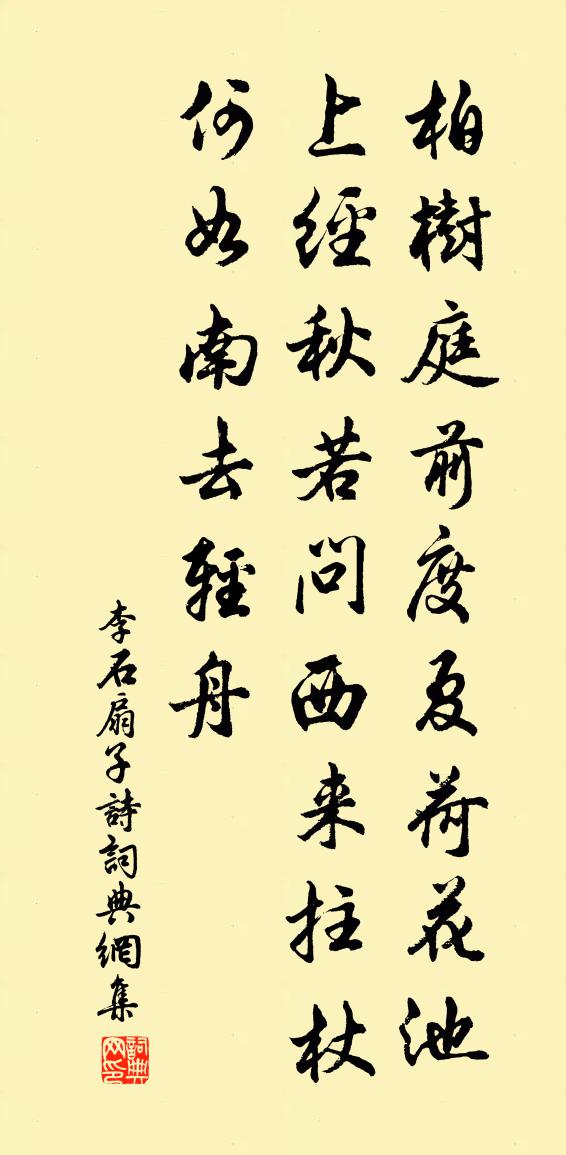 柏樹庭前度夏荷花池
上經秋若問西来拄杖
何如南去輕舟
李石扇子詩詞典網集
詞典网印